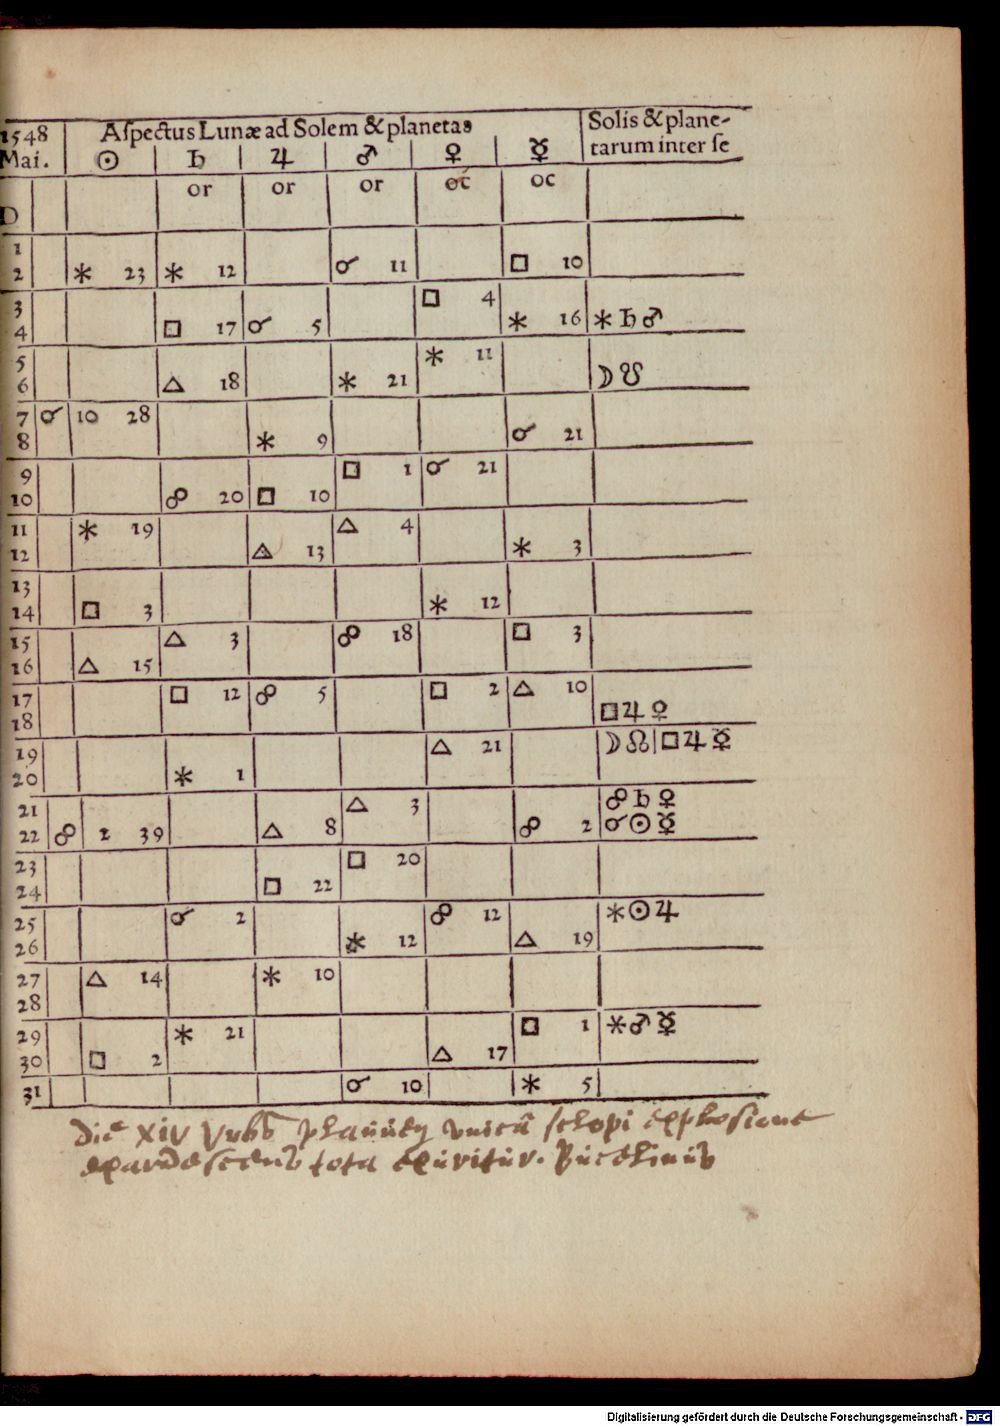 1548 Aſpectus Lunæ ad Solem & planetas Solis & plane-
Mai. ☉ ♄ ♃ ♂ ♀ ☿ tarum inter ſe
D or or or oc oc
1
2 ⚹ 23 ⚹ 12 ☌ 11 □ 10
3 □ 4
4 □ 17 ☌ 5 ⚹ 16 ⚹ ♄ ♂
5 ⚹ 11
6 △ 18 ⚹ 21 ☽ ☋
7 ☌ 10 28
8 ⚹ 9 ☌ 21
9 □ 1 ☌ 21
10 ☍ 20 □ 10
11 ⚹ 19 △ 4
12 △ 13 ⚹ 3
13
14 □ 3 ⚹ 12
15 △ 3 ☍ 18 □ 3
16 △ 15
17 □ 12 ☍ 5 □ 2 △ 10
18 □ ♃ ♀
19 △ 21 ☽ ☊ | □ ♃ ☿
20 ⚹ 1
21 △ 3 ☍ ♄ ♀
22 ☍ 2 39 △ 8 ☍ 2 ☌ ☉ ☿
23 □ 20
24 □ 22
25 ☌ 2 ☍ 12 ⚹ ☉ ♃
26 ⚹ 12 △ 19
27 △ 14 ⚹ 10
28
29 ⚹ 21 □ 1 ⚹ ♂ ☿
30 □ 2 △ 17
31 ☌ 10 ⚹ 5
Die XIV Vrbs unicâ sclopi explosione
exardescens tota exuritur. Bucelinus
Digitalisierung gefördert durch die Deutsche Forschungsgemeinschaft - DFG